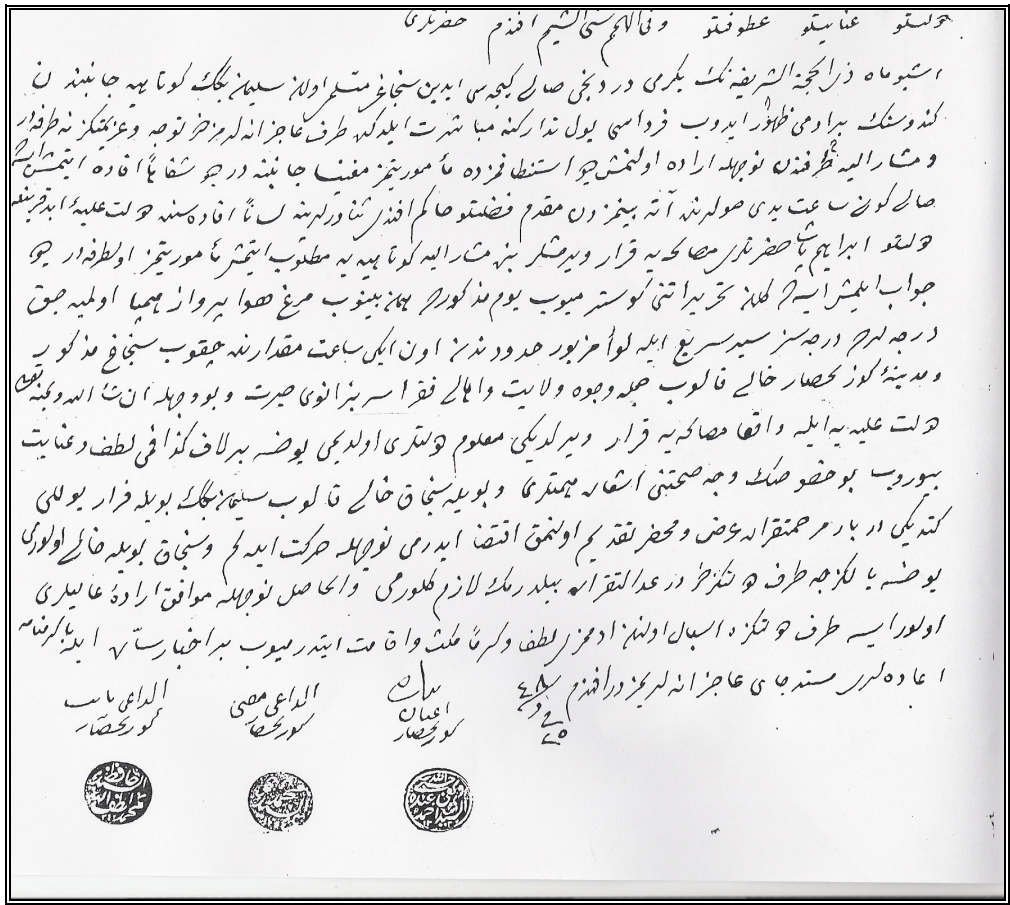 دولتلو عنايتلو عطوفتلو ولى النعم افندم حضرتلرى
اشبو ماه ذى الحجة الشريفه نك يكرمى دردنجى صالى كيجه سى ايدين سنجاغى متسلمى اولان سليمان بكك كوتاهيه جانبندن
كندوسنك بر ادمى ظهور ايدوب فرداسى يول تداركنه مباشرت ايلدكن طرف عاجزانه لريمزدن توجه و عزيمتكز نه طرفه در
و مشار اليه طرفندن نوجهله اراده اولنمش ديو استنطاقمزده مأموريتمز مغنيسا جانبنه در ديو شفاهاً افاده ايتمش
صالى كونى ساعت يدى صولرنده آته بينمزدن مقدم فضيلتلو حاكم افندى ثناورلرينه لساناً افاده سنده دولت عليه ايله
دولتلو ابراهيم پاشا حضرتلرى مصالحه يه قرار ويرمشلر بنى مشار اليه كوتاهيه يه مطلوب ايتمش مأموريتمز اولطرفه در ديو
جواب ايلمش ايسه ده كلان تحريراتنى كوسترميوب يوم مذكورده همان بينوب مرغ هوا پرواز اولميه جق
درجه لرده درجه سز سير سريع ايله لواء مزبور حدودندن اون ايكى ساعت مقدارنده چقوب سنجاغ مذكور
و مدينهٔ كوزلحصار خالى قالوب جمله وجوه ولايت و اهالى فقرا سر بزانوى حيرت و بو وجهله ان شاء الله
دولت عليه ايله واقعا مصالحه يه قرار ويرلديكى معلوم دولتلرى اولديمى يوخسه بر لاف كذافمى لطف و عنايت
بيوروب بو خصوصك وجه صحتنى اشعار همتلرى و بويله سنجاق خالى قالوب سليمان بكك بويله فرار يوللى
كتديكى دربار مرحمتقراره عرض و محضر تقديم اولنمق اقتضا ايدرمى نوجهله حركت ايده لم و سنجاق بويله خالى اولورمى
يوخسه يالكزجه طرف دولتكزدن در عدالتقراره بيلدرمك لازم كلورمى والحاصل نوجهله موافق ارادهٔ عاليلرى
اولور ايسه طرف دولتكزه اسبال اولنان ادممزى لطف و كرماً مكث و اقامت ايتدرميوب بر اخبار
اعاده لرى مستدعاى عاجزانه لريمزدر افندم
٢٥
اعيان
كوزلحصار
الداعى مفتى
كوزلحصار
الداعى نائب
كوزلحصار